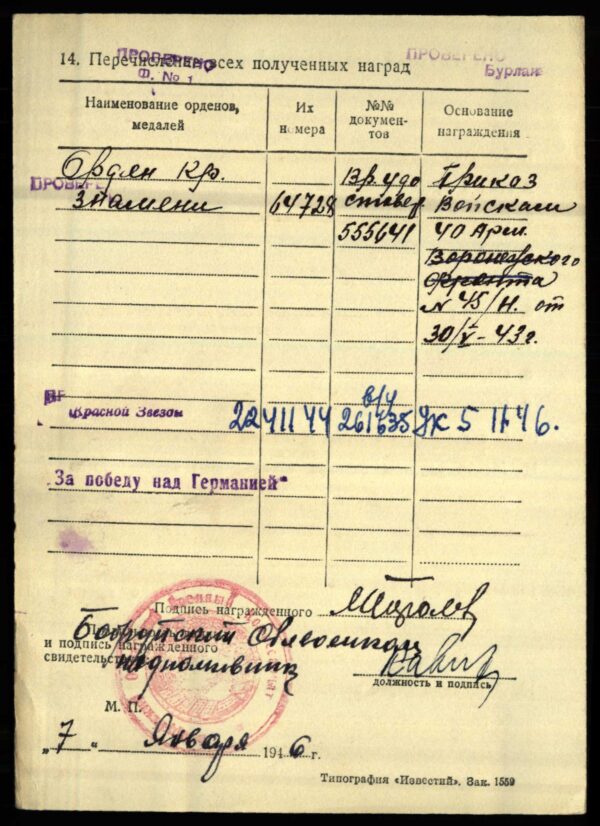 ПРОВЕРЕНО
Ф. № 1
ПРОВЕРЕНО
Бурлак
14. Перечисление всех полученных наград
Наименование орденов, медалей
Их номера
№№ докумен-тов
Основание награждения
ПРОВЕРЕ
Орден Кр. Знамени
64728
Вр. удо
555641
Приказ
Войскам
40 Арм.
Воронежского
фронта
N 45/Н. от
30/V-43г.
Красной Звезды
2241144
в/ч
261635
УК 5 11 46.
„За победу над Германией"
Подпись награжденного
и подпись награжденного
свидетельств
должность и подпись
М. П.
„7" Января 1946 г.
Типография «Известий». Зак. 1559